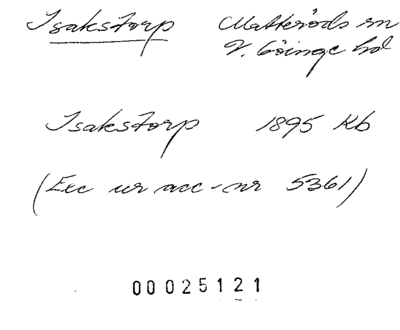 Isakstorp Matteröds sn
V. Göinge hd
Isakstorp 1895 Kb
(Exc ur acc-nr 5361)
00025121